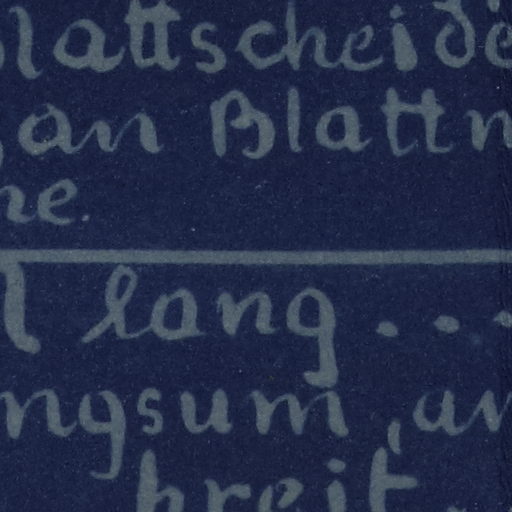 Blattscheide
an Blattn
ne.
lang . . .
ngsum, an
breit